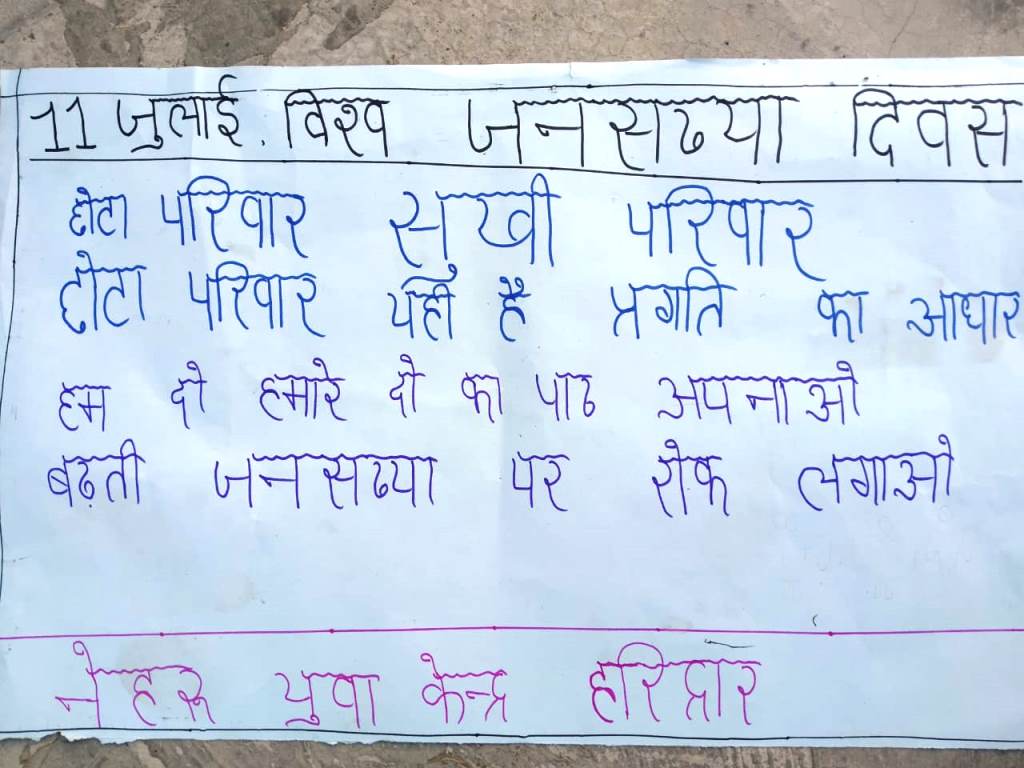 11 जुलाई. विश्व जनसख्या दिवस
छोटा परिवार सुखी परिवार
छोटा परिवार यही है प्रगति का आधार
हम दो हमारे दो का पाठ अपनाओ
बढ़ती जनसख्या पर रोक लगाओ
नेहरू युवा केन्द्र हरिद्वार